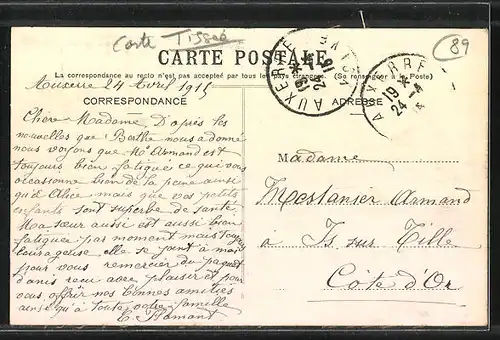 Carte Tissée
89
CARTE POSTALE
La correspondance au recto n'est pas acceptée par tous les pays étrangers. (Se renseigner à la Poste)
AUXERRE
AUXERRE
19 24-4
Auxerre 24 Avril 1915
CORRESPONDANCE
ADRESSE
Chère Madame D'après les
nouvelles que Berthe nous a donné
nous voyons que Mr Armand est
toujours bien fatigué ce qui vous
occasionne bien de la peine ainsi
qu'à Alice mais que vos petits
enfants sont superbe de santé
Ma sœur aussi est aussi bien
fatiguée par moment mais toujours
courageuse elle se joint à moi
pour vous remercier du paquet
d'anis reçu avec plaisir et pour
vous offrir nos bonnes amitiés
ainsi qu'à toute votre famille
E. Flamant
Madame
Mestanier Armand
à Is sur Tille
Côte d'Or